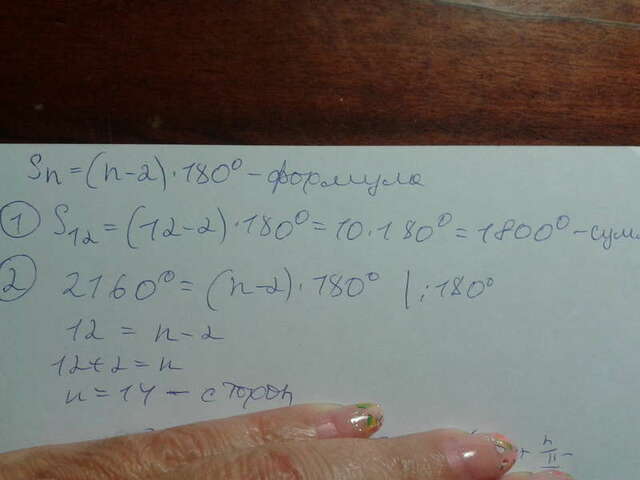 Sn=(n-2)·180⁰-формула
① S12=(12-2)·180⁰=10·180⁰=1800⁰-сумм
② 2160⁰=(n-2)·180⁰ |:180⁰
12 = n-2
12+2=n
n=14 - сторон